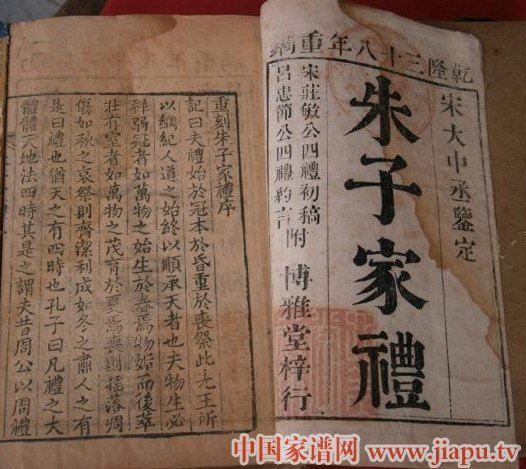 乾隆三十八年重鐫
宋大中丞鑒定
朱子家禮
宋莊敏公四禮初稿附
呂忠節公四禮約言
博雅堂梓行
重刻朱子家禮序
記曰夫禮始於冠本於昏重於喪祭此先王所
以綱紀人道之始終以順承天者也夫物生必
穉弱冠者如萬物之始生於春焉物始而後萃
壯有室者如萬物之茂育於夏焉喪則搖落凋
傷如秋之哀祭則齊潔利成如冬之肅人之有
是曰禮也猶天之有四時也孔子曰凡禮之大
體體天地法四時其是之謂夫昔周公以周禮
中国家谱网 www.jiapu.tv